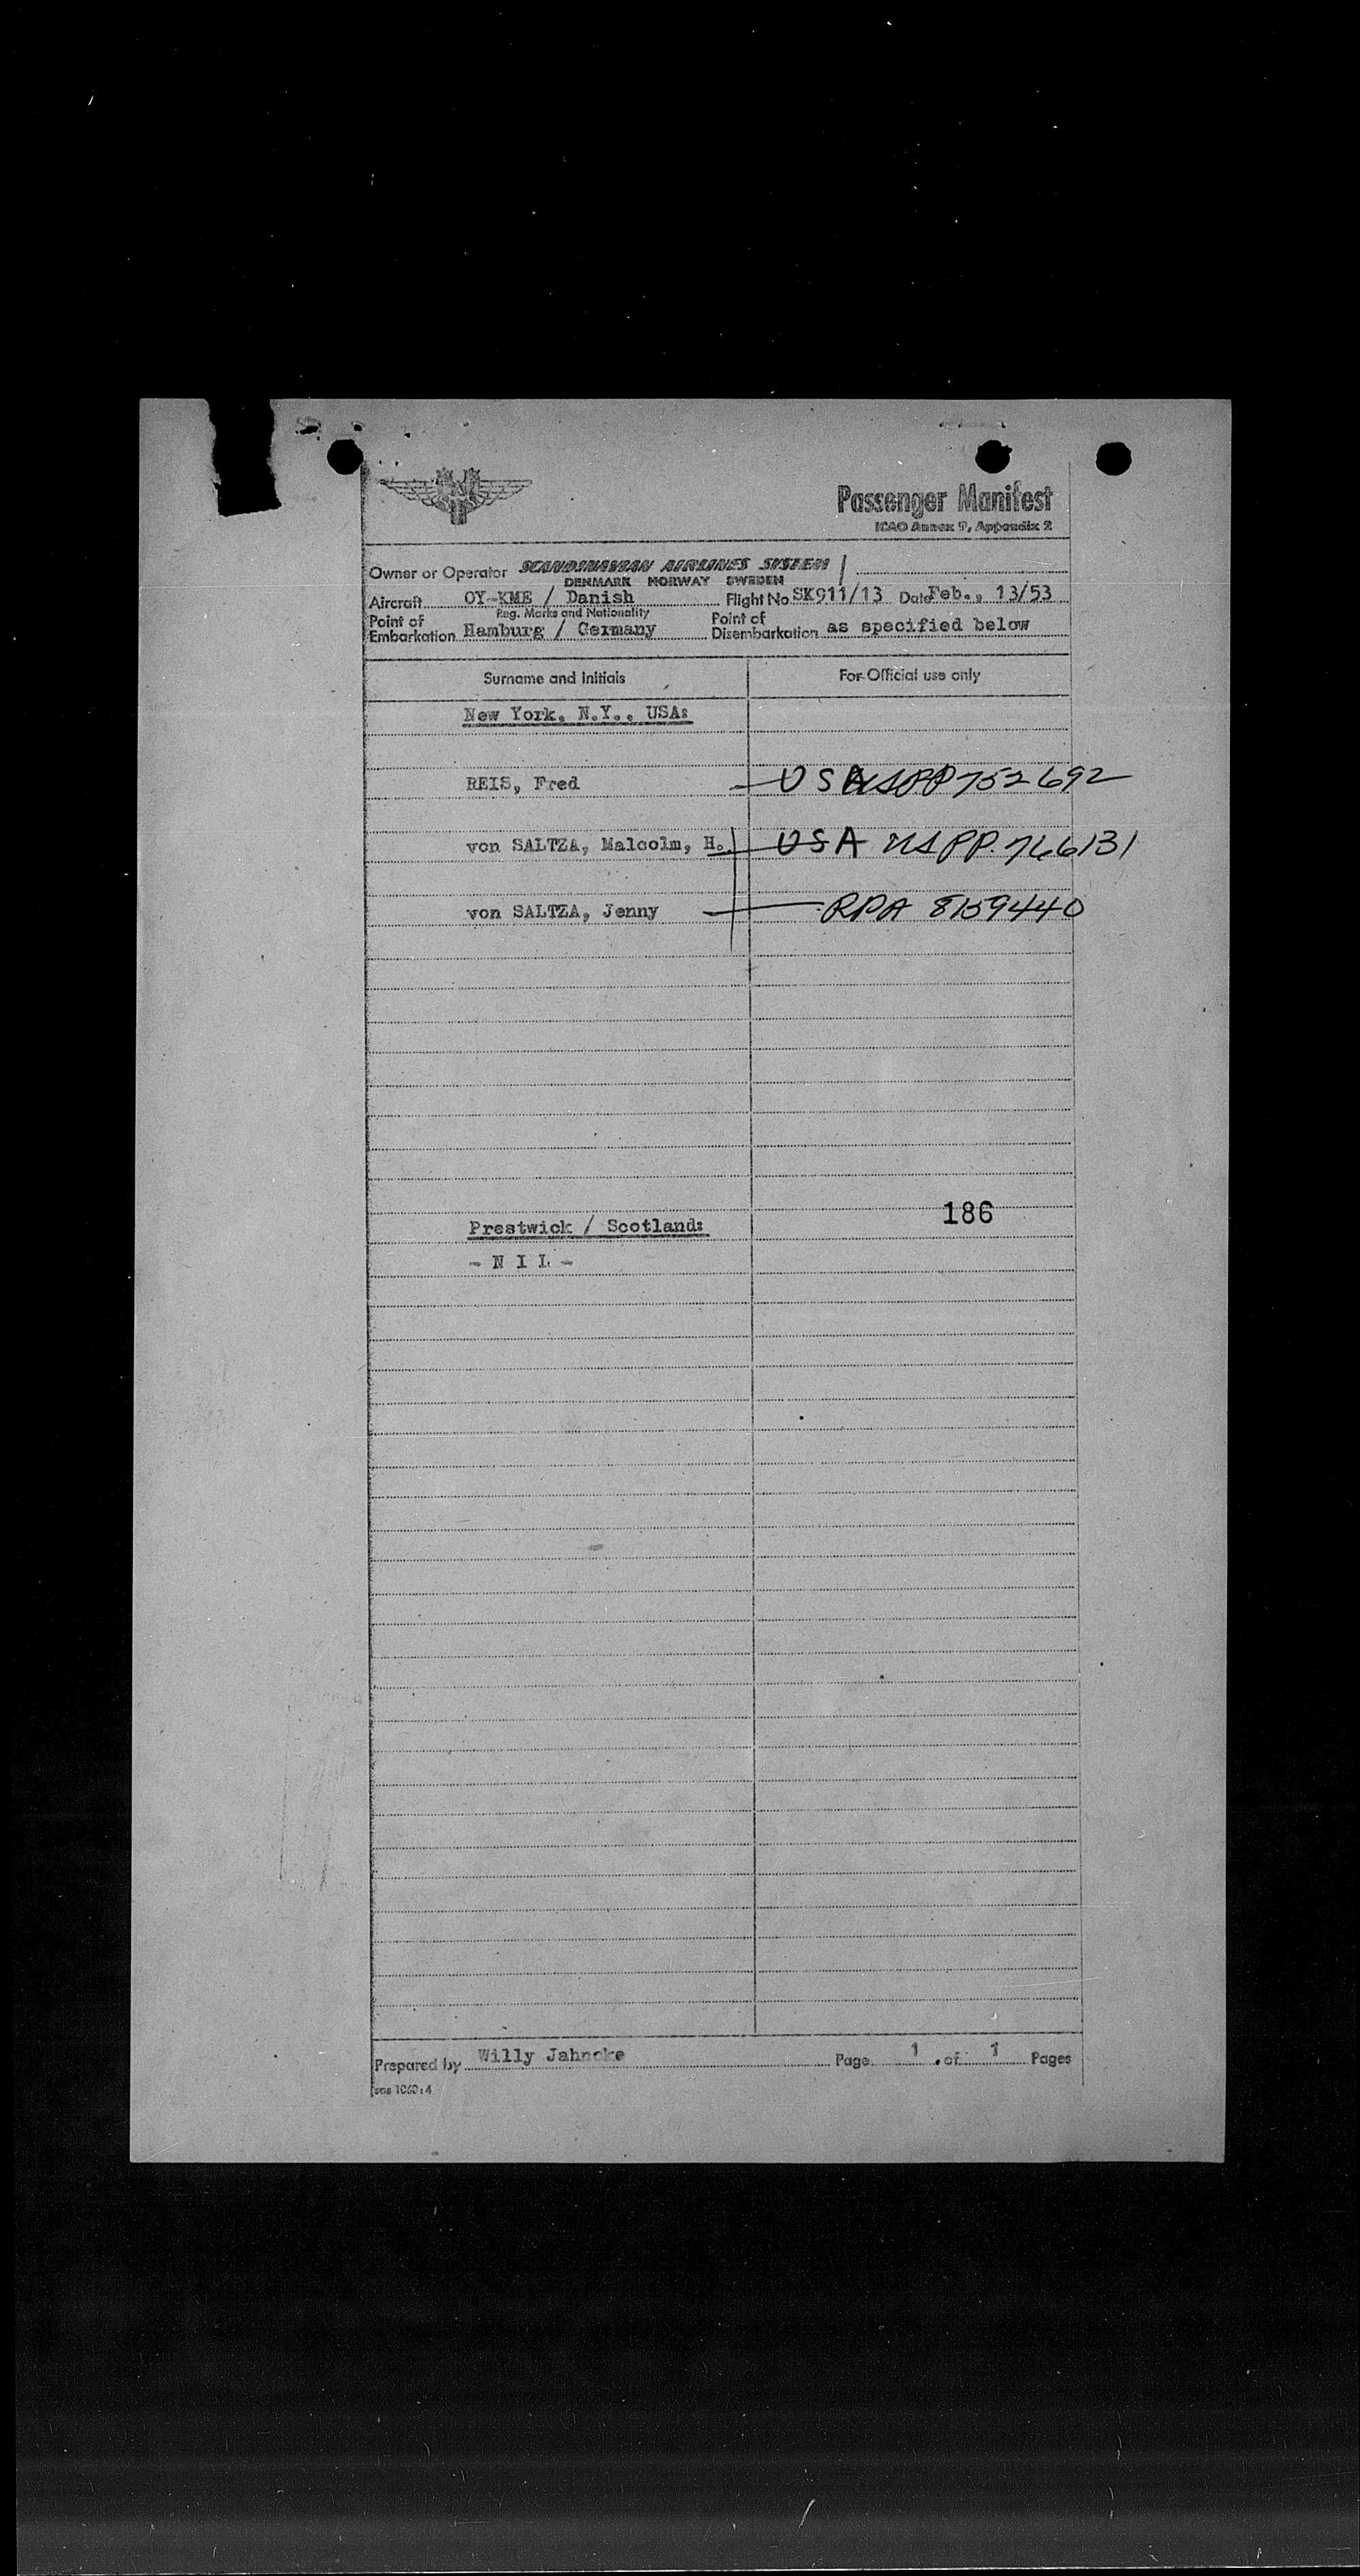 Passenger Manifest
ICAO Annex 9, Appendix 2
Owner or Operator SCANDINAVIAN AIRLINES SYSTEM
DENMARK NORWAY SWEDEN
Aircraft OY-KME / Danish Flight No SK911/13 Date Feb., 13/53
Reg. Marks and Nationality
Point of Embarkation Hamburg / Germany Point of Disembarkation as specified below
Surname and Initials For Official use only
New York, N.Y., USA:
REIS, Fred USA US PP 752692
von SALTZA, Malcolm, H. USA US PP. 766131
von SALTZA, Jenny RPA 8159440
186
Prestwick / Scotland:
- N I L -
Prepared by Willy Jahncke Page 1 of 1 Pages
1060:4